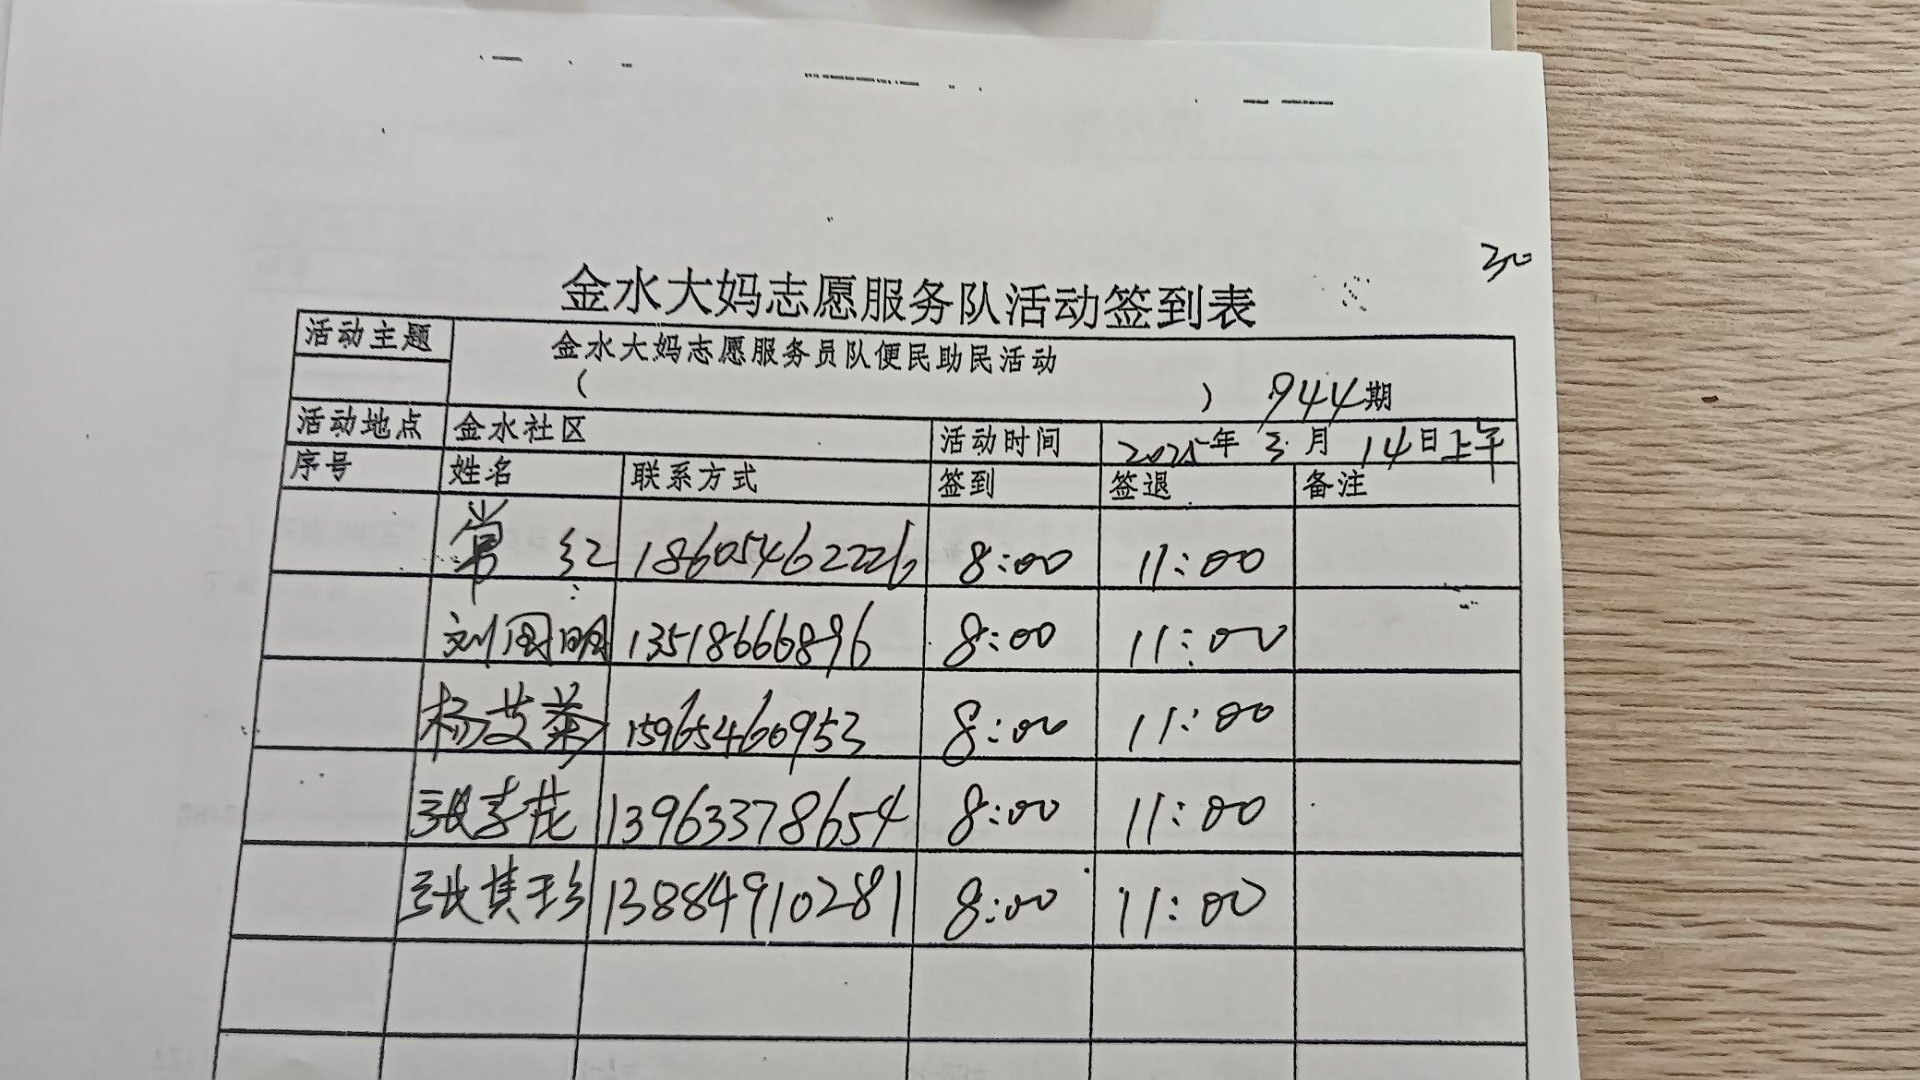 30
金水大妈志愿服务队活动签到表
活动主题 金水大妈志愿服务员队便民助民活动
( ) 944期
活动地点 金水社区 活动时间 2025年 3月 14日上午
序号 姓名 联系方式 签到 签退 备注
常红 18605462226 8:00 11:00
刘国明 13518666896 8:00 11:00
杨艾菜 15965460953 8:00 11:00
张孝花 13963378654 8:00 11:00
张其珍 13884910281 8:00 11:00